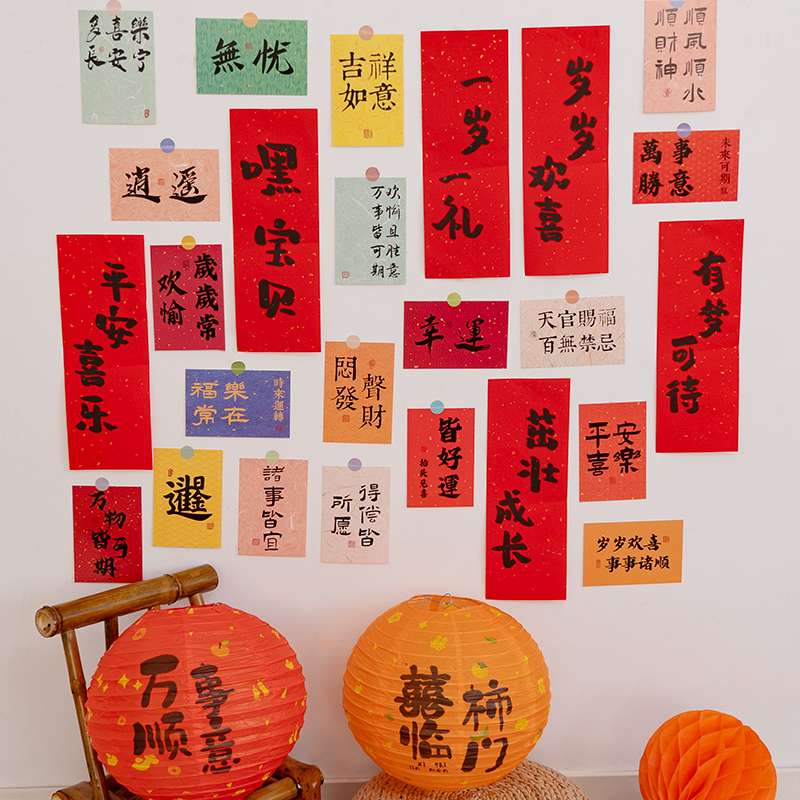 多喜樂
長安宁
無忧
吉祥
如意
一岁一礼
岁岁
欢喜
順風順水
順財神
萬事
勝意
未來可期
逍遥
嘿宝贝
欢愉且胜意
万事皆可期
平安喜乐
歲歲常
欢愉
幸運
天官賜福
百無禁忌
有梦可待
時來運轉
福樂
常在
悶聲
發財
皆好運
抬头见喜
茁壮成长
平安
喜樂
万物可
皆期
諸事皆宜
得偿皆
所愿
岁岁欢喜
事事诸顺
万事
顺意
囍柿
临门